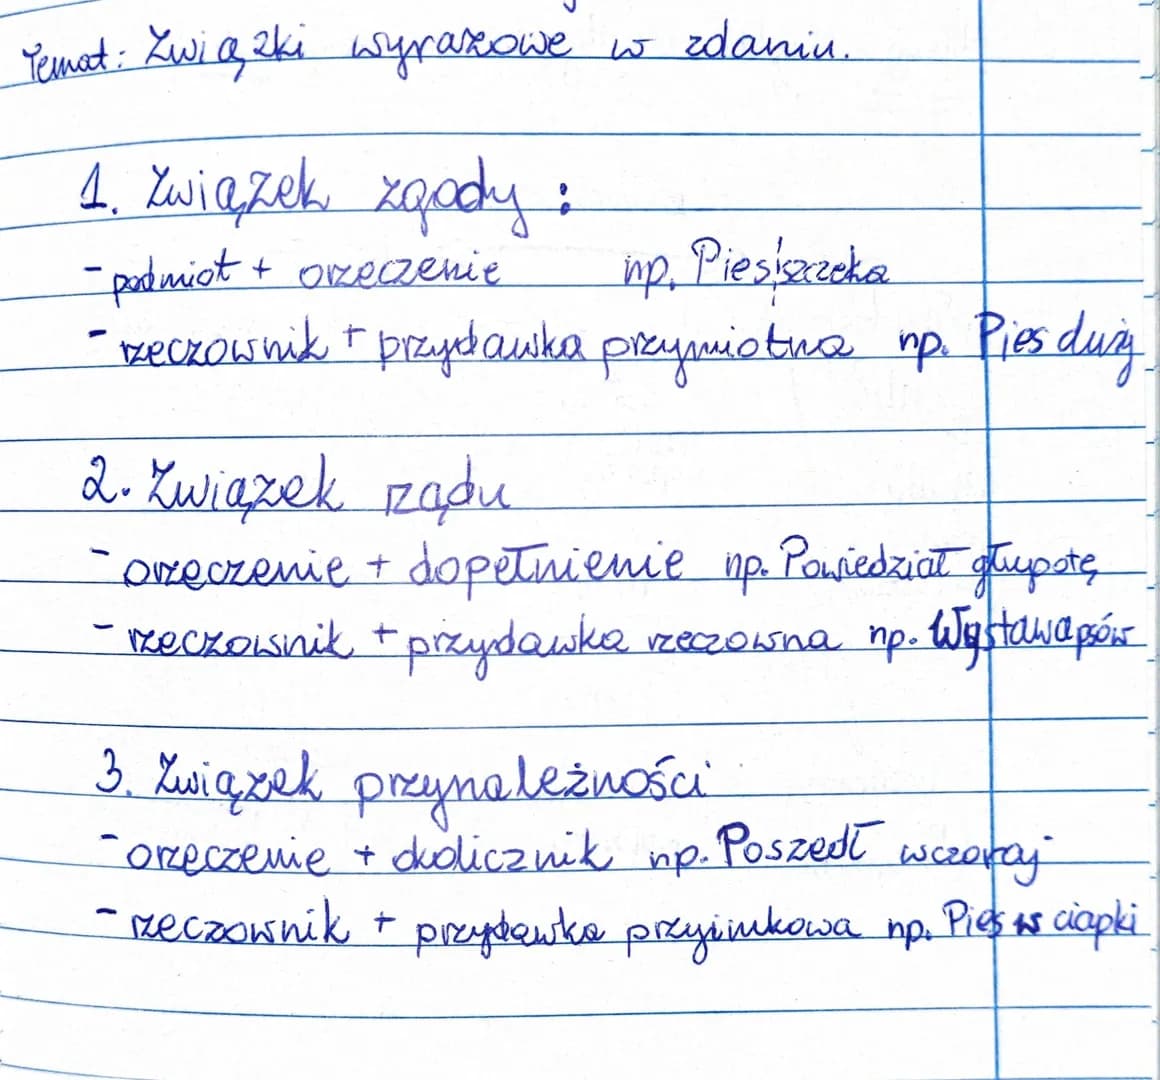 Temat: Związki wyrazowe w zdaniu.
1. Związek zgody:
- podmiot + orzeczenie np. Pies szczeka
- rzeczownik + przydawka przymiotna np. Pies duży
2. Związek rządu
- orzeczenie + dopełnienie np. Powiedział głupotę
- rzeczownik + przydawka rzeczowna np. Wystawa psów
3. Związek przynależności
- orzeczenie + okolicznik np. Poszedł wczoraj
- rzeczownik + przydawka przyimkowa np. Pies w ciapki